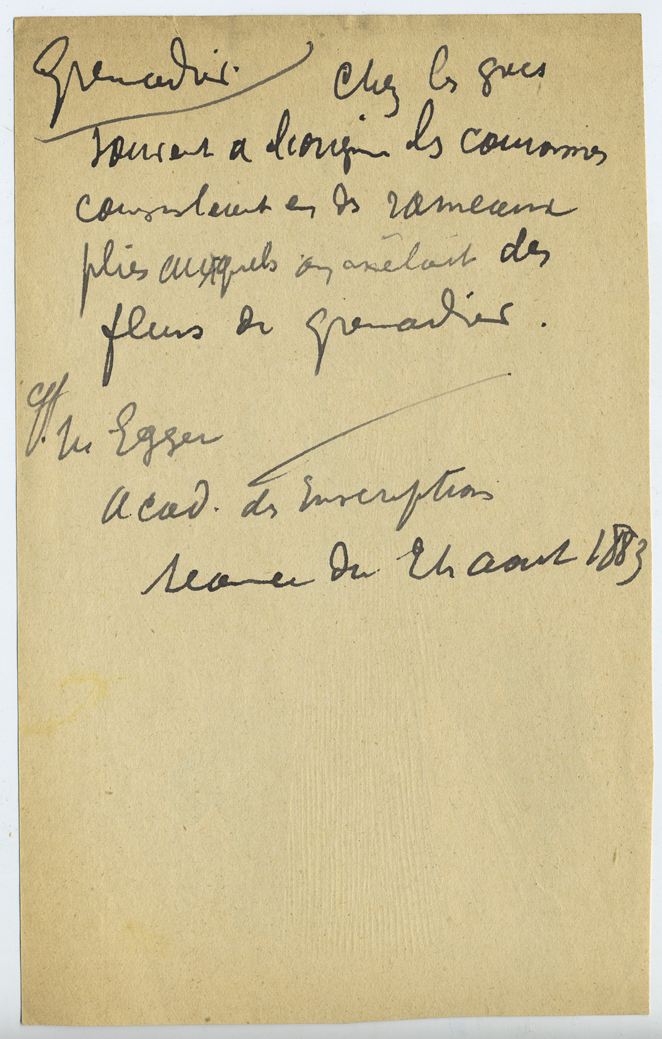 Grenadier. Chez les grecs
souvent a l'origine les couronnes
consistaient en des rameaux
pliés auxquels on mêlait des
fleurs de grenadier.
M Egger
Acad. des Inscriptions
seance du 24 aout 1883